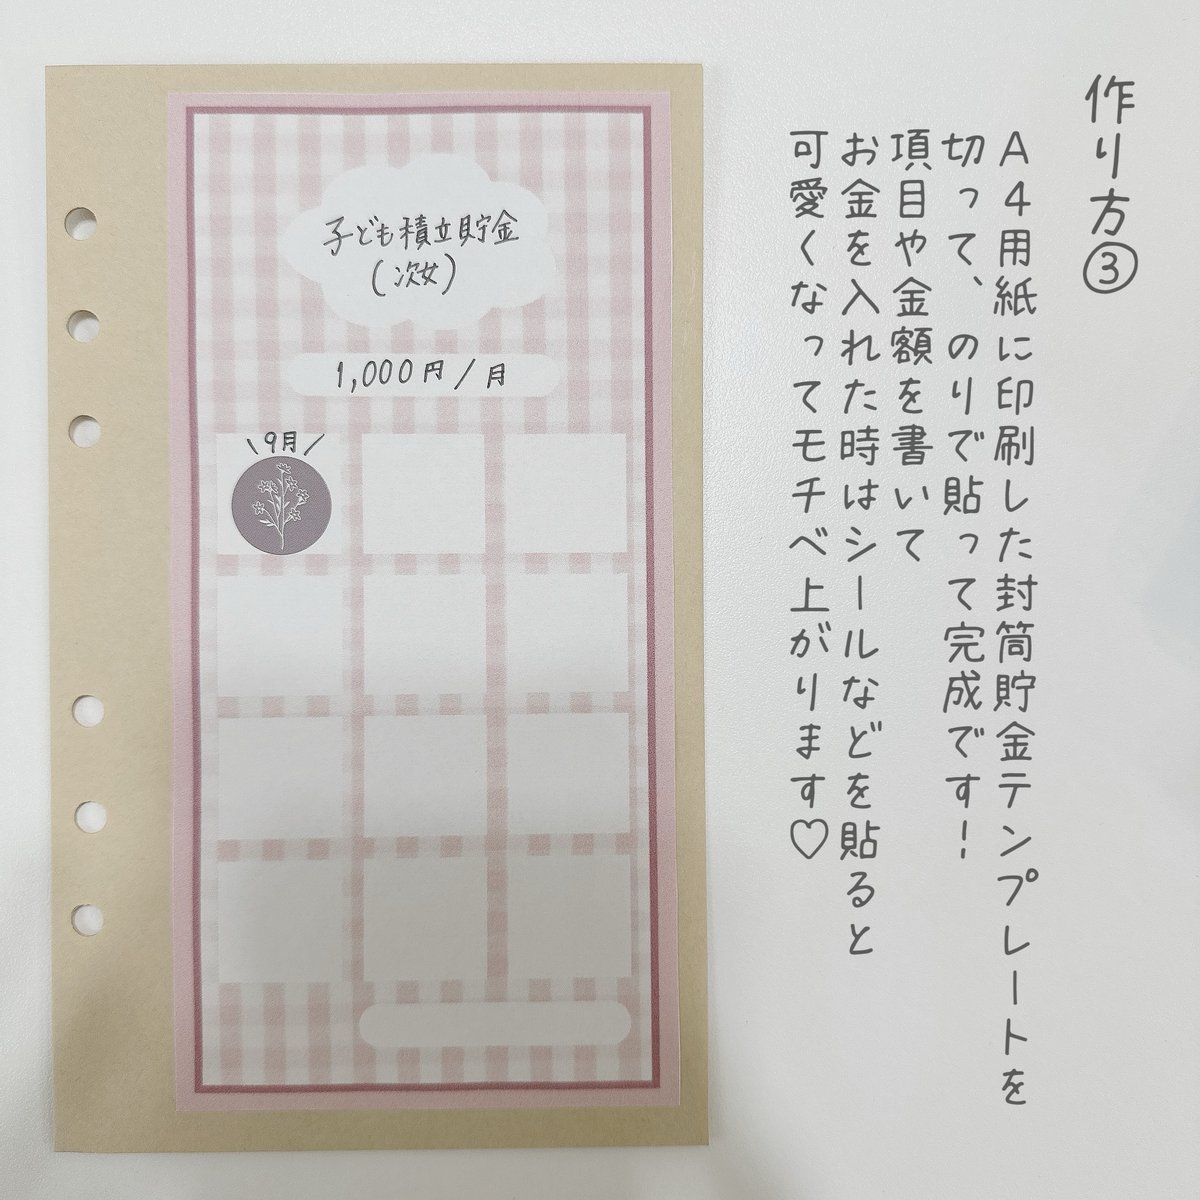 作り方③
A4用紙に印刷した封筒貯金テンプレートを
切って、のりで貼って完成です！
項目や金額を書いて
お金を入れた時はシールなどを貼ると
可愛くなってモチベ上がります♡
子ども積立貯金
(次女)
1,000円/月
\9月/